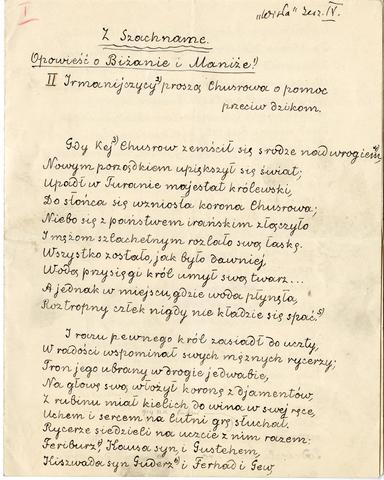 I
"Wisła" Zesz. IV.
Z Szachname.
Opowieść o Biżanie i Maniże.¹)
II Irmanijczycy²) proszą Chusrowa o pomoc
przeciw dzikom.
Gdy Kej³) Chusrow zemścił się srodze nad wrogiem,⁴)
Nowym porządkiem upiększył się świat;
Upadł w Turanie majestat królewski,
Do słońca się wzniosła korona Chusrowa;
Niebo się z państwem irańskim złączyło
I mężom szlachetnym rozlało swą łaskę.
Wszystko zostało, jak było dawniej,
Wodą przysięgi król umył swą twarz...
A jednak w miejscu, gdzie woda płynęła,
Roztropny człek nigdy nie kładzie się spać.⁵)
I razu pewnego król zasiadł do uczty,
W radości wspominał swych mężnych rycerzy;
Tron jego ubrany w drogie jedwabie,
Na głowę swą włożył koronę z djamentów,
Z rubinu miał kielich do wina w swej ręce,
Uchem i sercem na lutni grę słuchał.
Rycerze siedzieli na uczcie z nim razem:
Feriburz, Kausa syn i Gustehem,
Kiszwada syn Guderz i Ferhad i Gew,